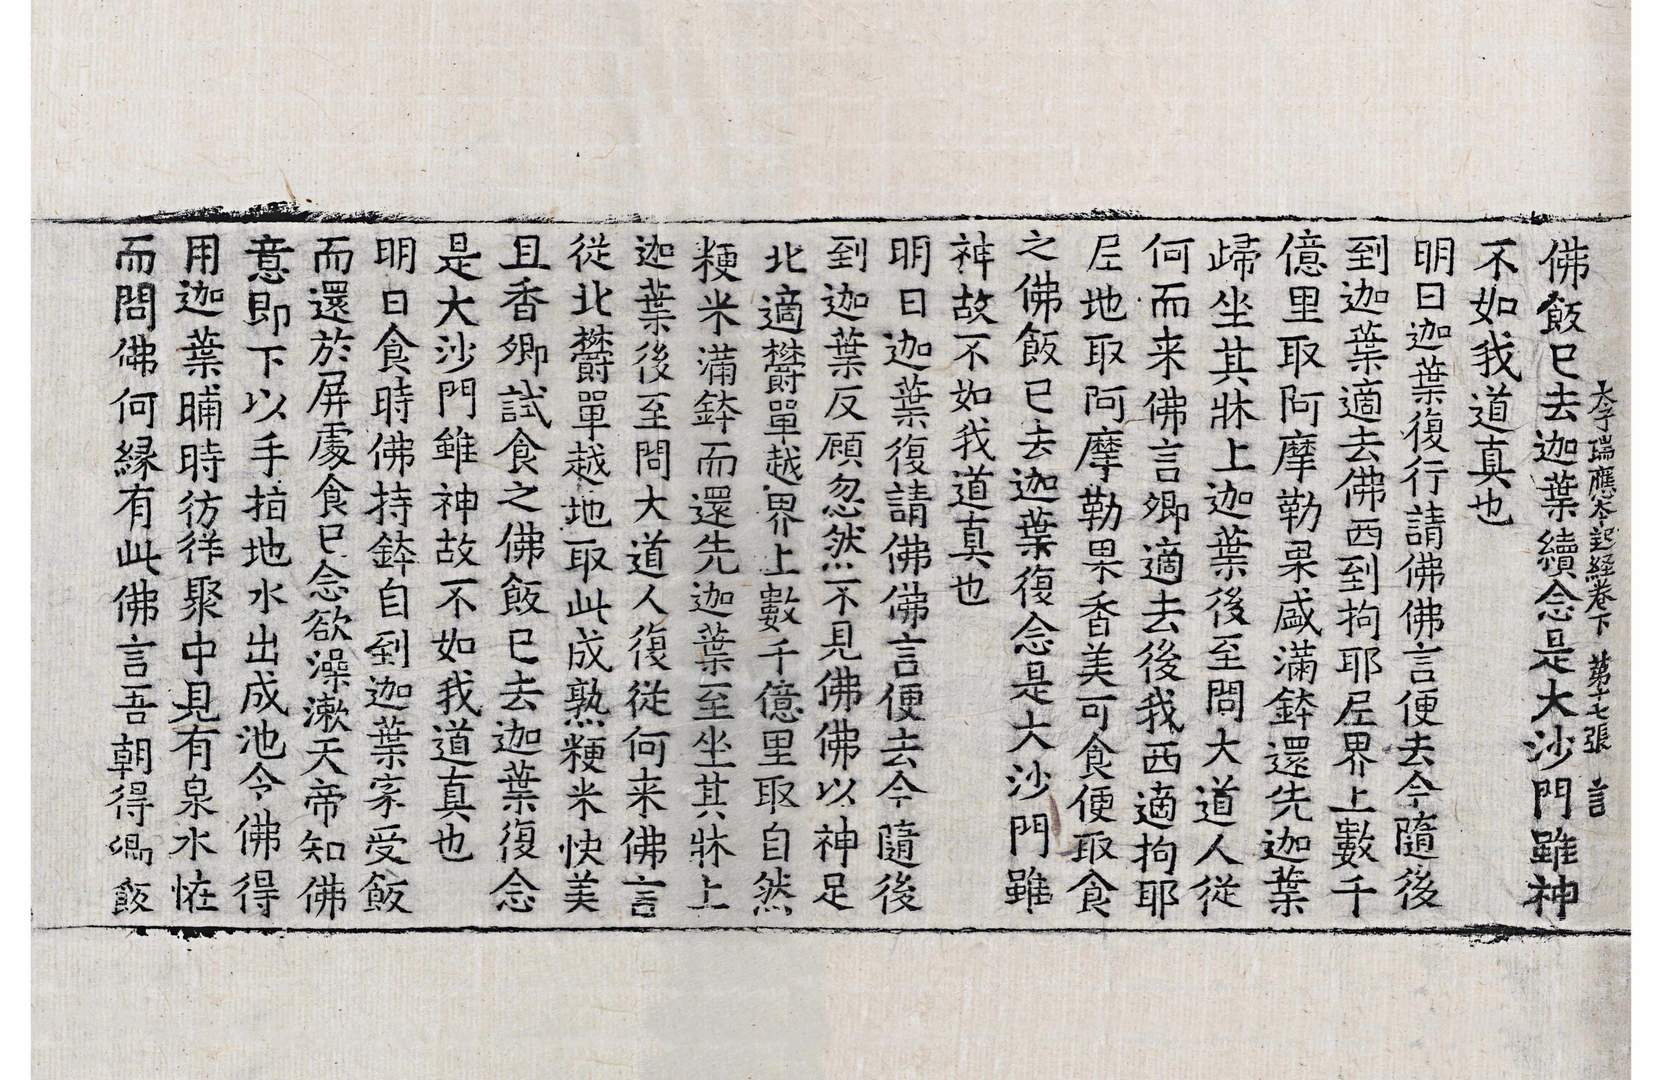 太子瑞應本起経卷下　第十七張　言
佛飯已去迦葉續念是大沙門雖神
不如我道真也
明日迦葉復行請佛佛言便去今隨後
到迦葉適去佛西到拘耶尼界上數千
億里取阿摩勒果盛滿鉢還先迦葉
歸坐其牀上迦葉後至問大道人從
何而来佛言卿適去後我西適拘耶
尼地取阿摩勒果香美可食便取食
之佛飯已去迦葉復念是大沙門雖
神故不如我道真也
明日迦葉復請佛佛言便去今隨後
到迦葉反顧忽然不見佛佛以神足
北適欝單越界上數千億里取自然
粳米滿鉢而還先迦葉至坐其牀上
迦葉後至問大道人復從何来佛言
從北欝單越地取此成熟粳米快美
且香卿試食之佛飯已去迦葉復念
是大沙門雖神故不如我道真也
明日食時佛持鉢自到迦葉家受飯
而還於屏處食已念欲澡漱天帝知佛
意即下以手指地水出成池令佛得
用迦葉晡時彷徉聚中見有泉水恠
而問佛何縁有此佛言吾朝得卿飯